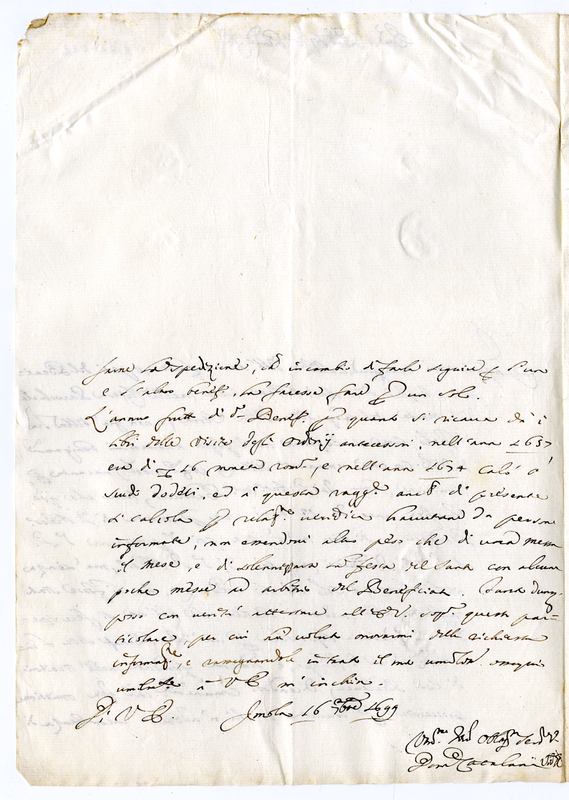 farne la spedizione, ch'in cambio di farla seguire p l'uno
e l'altro benef., la facesse fare p un solo.
L'annuo frutto di d.o Benef. p quanto si ricava da i
libri delle Visite degl'Ordinarij antecessori, nell'anno 1637
era di 16 moneta rom., e nell'anno 1674 calò a
scudi dodeci, ed a questa ragg.e anche di presente
si calcola p relaz.e veridica havutane da persone
informate, non essendovi altro peso che di una messa
il mese, e di solennizzare la festa del Santo con alcune
poche messe ad arbitrio del Beneficiato. Tanto
posso con verità attestare all'E.V. sop.a questo par-
ticolare, per cui hà voluto onorarmi delle richieste
informaz.i, e rassegnandole intanto il mio
umilm.te a V.E. m'inchino.
Di V.E. Imola 16 9bre 1699